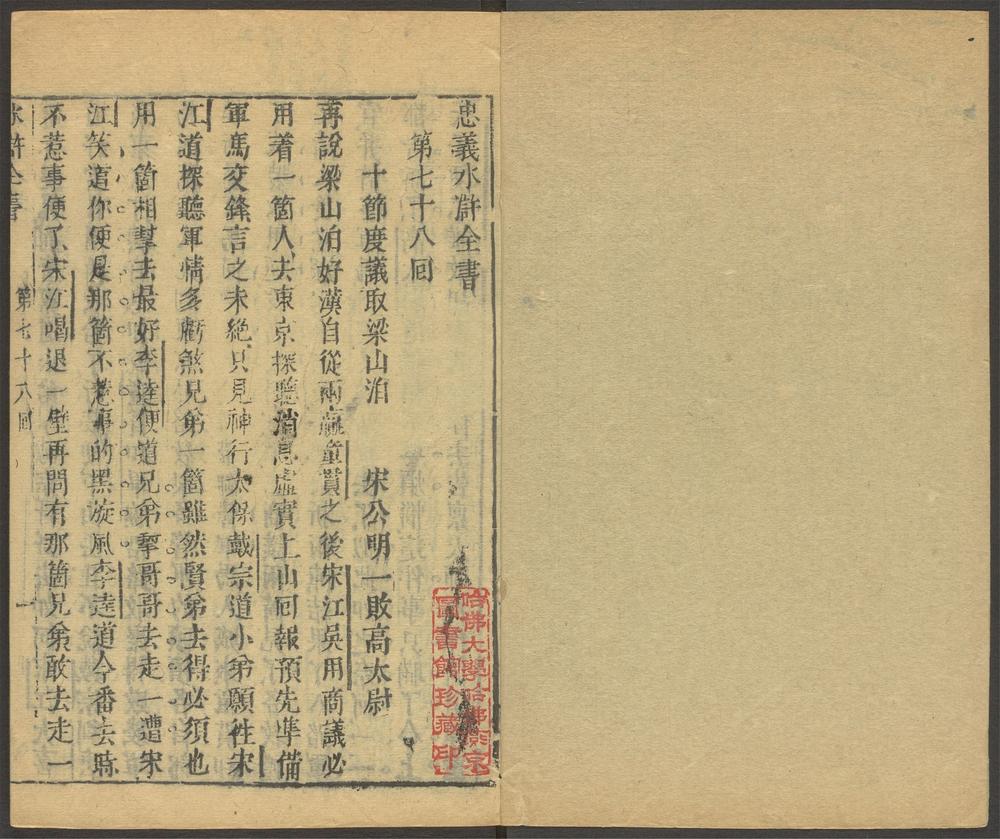 忠義水滸全書
第七十八回
十節度議取梁山泊 宋公明一敗高太尉
再說梁山泊好漢自從兩贏童貫之後宋江吳用商議必
用着一箇人去東京探聽消息虛實上山回報預先準備
軍馬交鋒言之未絕只見神行太保戴宗道小弟願往宋
江道探聽軍情多虧煞兄弟一箇雖然賢弟去得必須也
用一箇相幫去最好李逵便道兄弟幫哥哥去走一遭宋
江笑道你便是那箇不惹事的黑旋風李逵道今番去時
不惹事便了宋江喝退一壁再問有那箇兄弟敢去走一
水滸全書 第七十八回 一
哈佛大學哈佛燕京
圖書館珍藏印